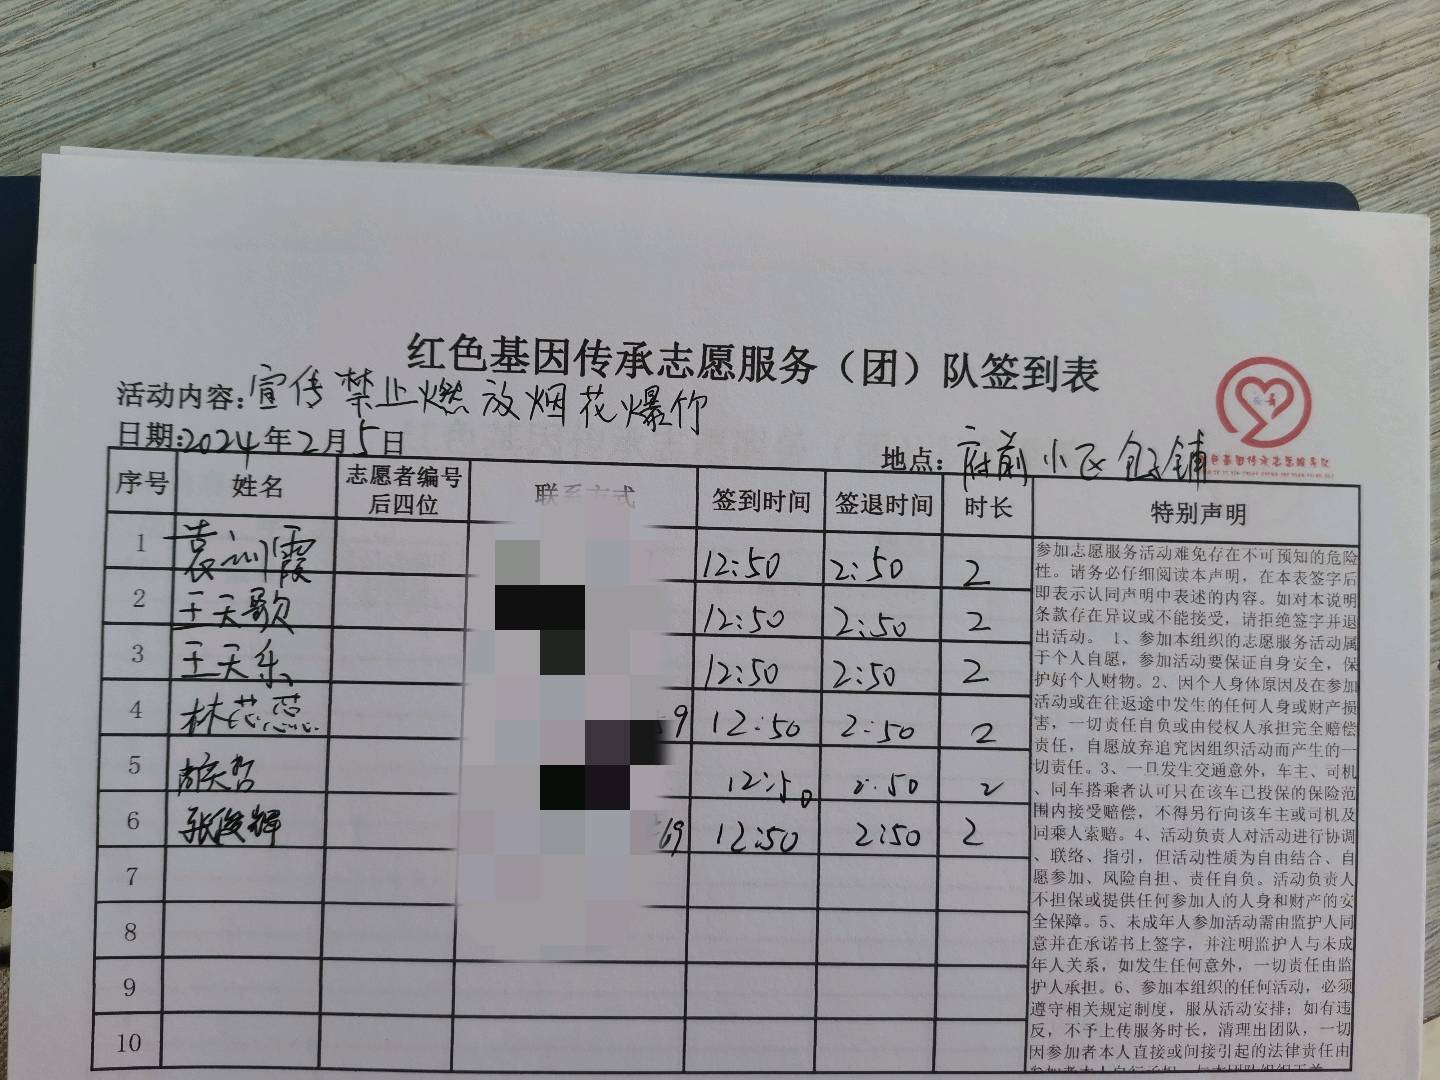 红色基因传承志愿服务（团）队签到表
活动内容:宣传禁止燃放烟花爆竹
日期:2024年2月5日
地点:府前小区包子铺
序号 姓名 志愿者编号后四位 联系方式 签到时间 签退时间 时长 特别声明
1 袁训霞 12:50 2:50 2
2 王天歌 12:50 2:50 2
3 王天乐 12:50 2:50 2
4 林芯蕊 9 12:50 2:50 2
5 胡天哲 12:50 2:50 2
6 张俊辉 69 12:50 2:50 2
7
8
9
10
参加志愿服务活动难免存在不可预知的危险
性。请务必仔细阅读本声明，在本表签字后
即表示认同声明中表述的内容。如对本说明
条款存在异议或不能接受，请拒绝签字并退
出活动。 1、参加本组织的志愿服务活动属
于个人自愿，参加活动要保证自身安全，保
护好个人财物。2、因个人身体原因及在参加
活动或在往返途中发生的任何人身或财产损
害，一切责任自负或由侵权人承担完全赔偿
责任，自愿放弃追究因组织活动而产生的一
切责任。3、一旦发生交通意外，车主、司机
、同车搭乘者认可只在该车已投保的保险范
围内接受赔偿，不得另行向该车主或司机及
同乘人索赔。4、活动负责人对活动进行协调
、联络、指引，但活动性质为自由结合、自
愿参加、风险自担、责任自负。活动负责人
不担保或提供任何参加人的人身和财产的安
全保障。5、未成年人参加活动需由监护人同
意并在承诺书上签字，并注明监护人与未成
年人关系，如发生任何意外，一切责任由监
护人承担。6、参加本组织的任何活动，必须
遵守相关规定制度，服从活动安排；如有违
反，不予上传服务时长，清理出团队，一切
因参加者本人直接或间接引起的法律责任由